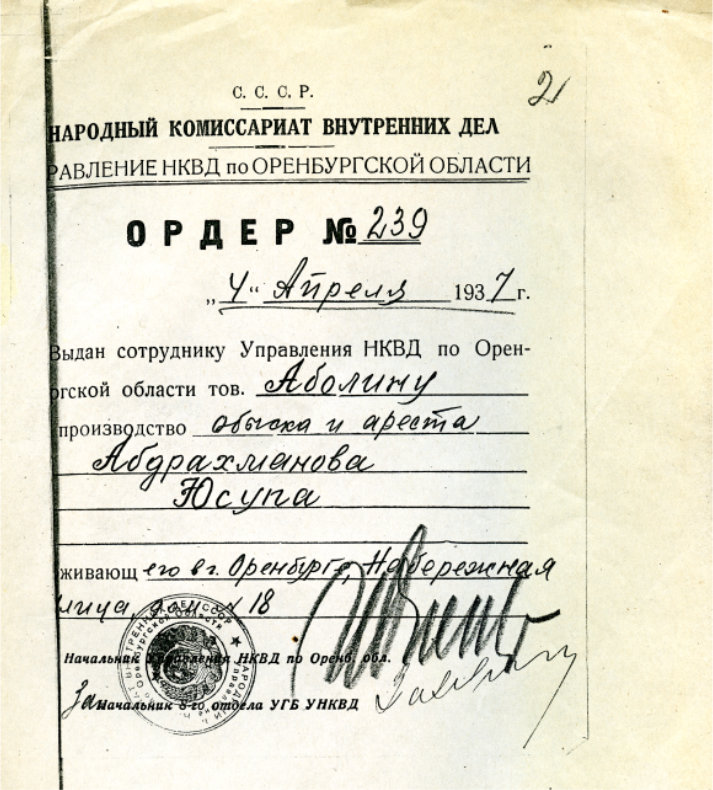 2
С. С. С. Р.
НАРОДНЫЙ КОМИССАРИАТ ВНУТРЕННИХ ДЕЛ
РАВЛЕНИЕ НКВД по ОРЕНБУРГСКОЙ ОБЛАСТИ
ОРДЕР № 239
„4“ Апреля 1937 г.
Выдан сотруднику Управления НКВД по Орен-
ргской области тов. Аболину
производство обыска и ареста
Абдрахманова
Юсупа
живающ его в г. Оренбурге, Набережная
улица, дом № 18
Начальник Управления НКВД по Оренб. обл.
Зам Начальник 8-го отдела УГБ УНКВД